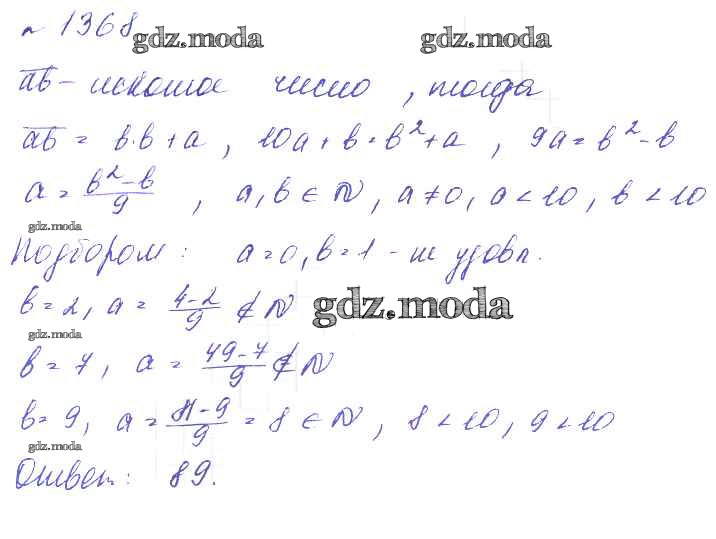 № 1368 gdz.moda gdz.moda
ab – искомое число, тогда
ab = b·b + a, 10a + b = b² + a, 9a = b² - b
a = (b² - b)/9, a, b ∈ N, a ≠ 0, a < 10, b < 10
gdz.moda
Подбором: a = 0, b = 1 - не удовл.
b = 2, a = (4 - 2)/9 ∉ N gdz.moda
gdz.moda
b = 7, a = (49 - 7)/9 ∉ N
b = 9, a = (81 - 9)/9 = 8 ∈ N, 8 < 10, 9 < 10
gdz.moda
Ответ: 89.